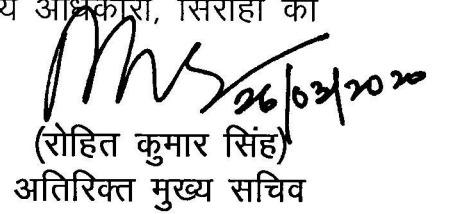 अधिकारी, सिरोही को
26/03/2020
(रोहित कुमार सिंह)
अतिरिक्त मुख्य सचिव